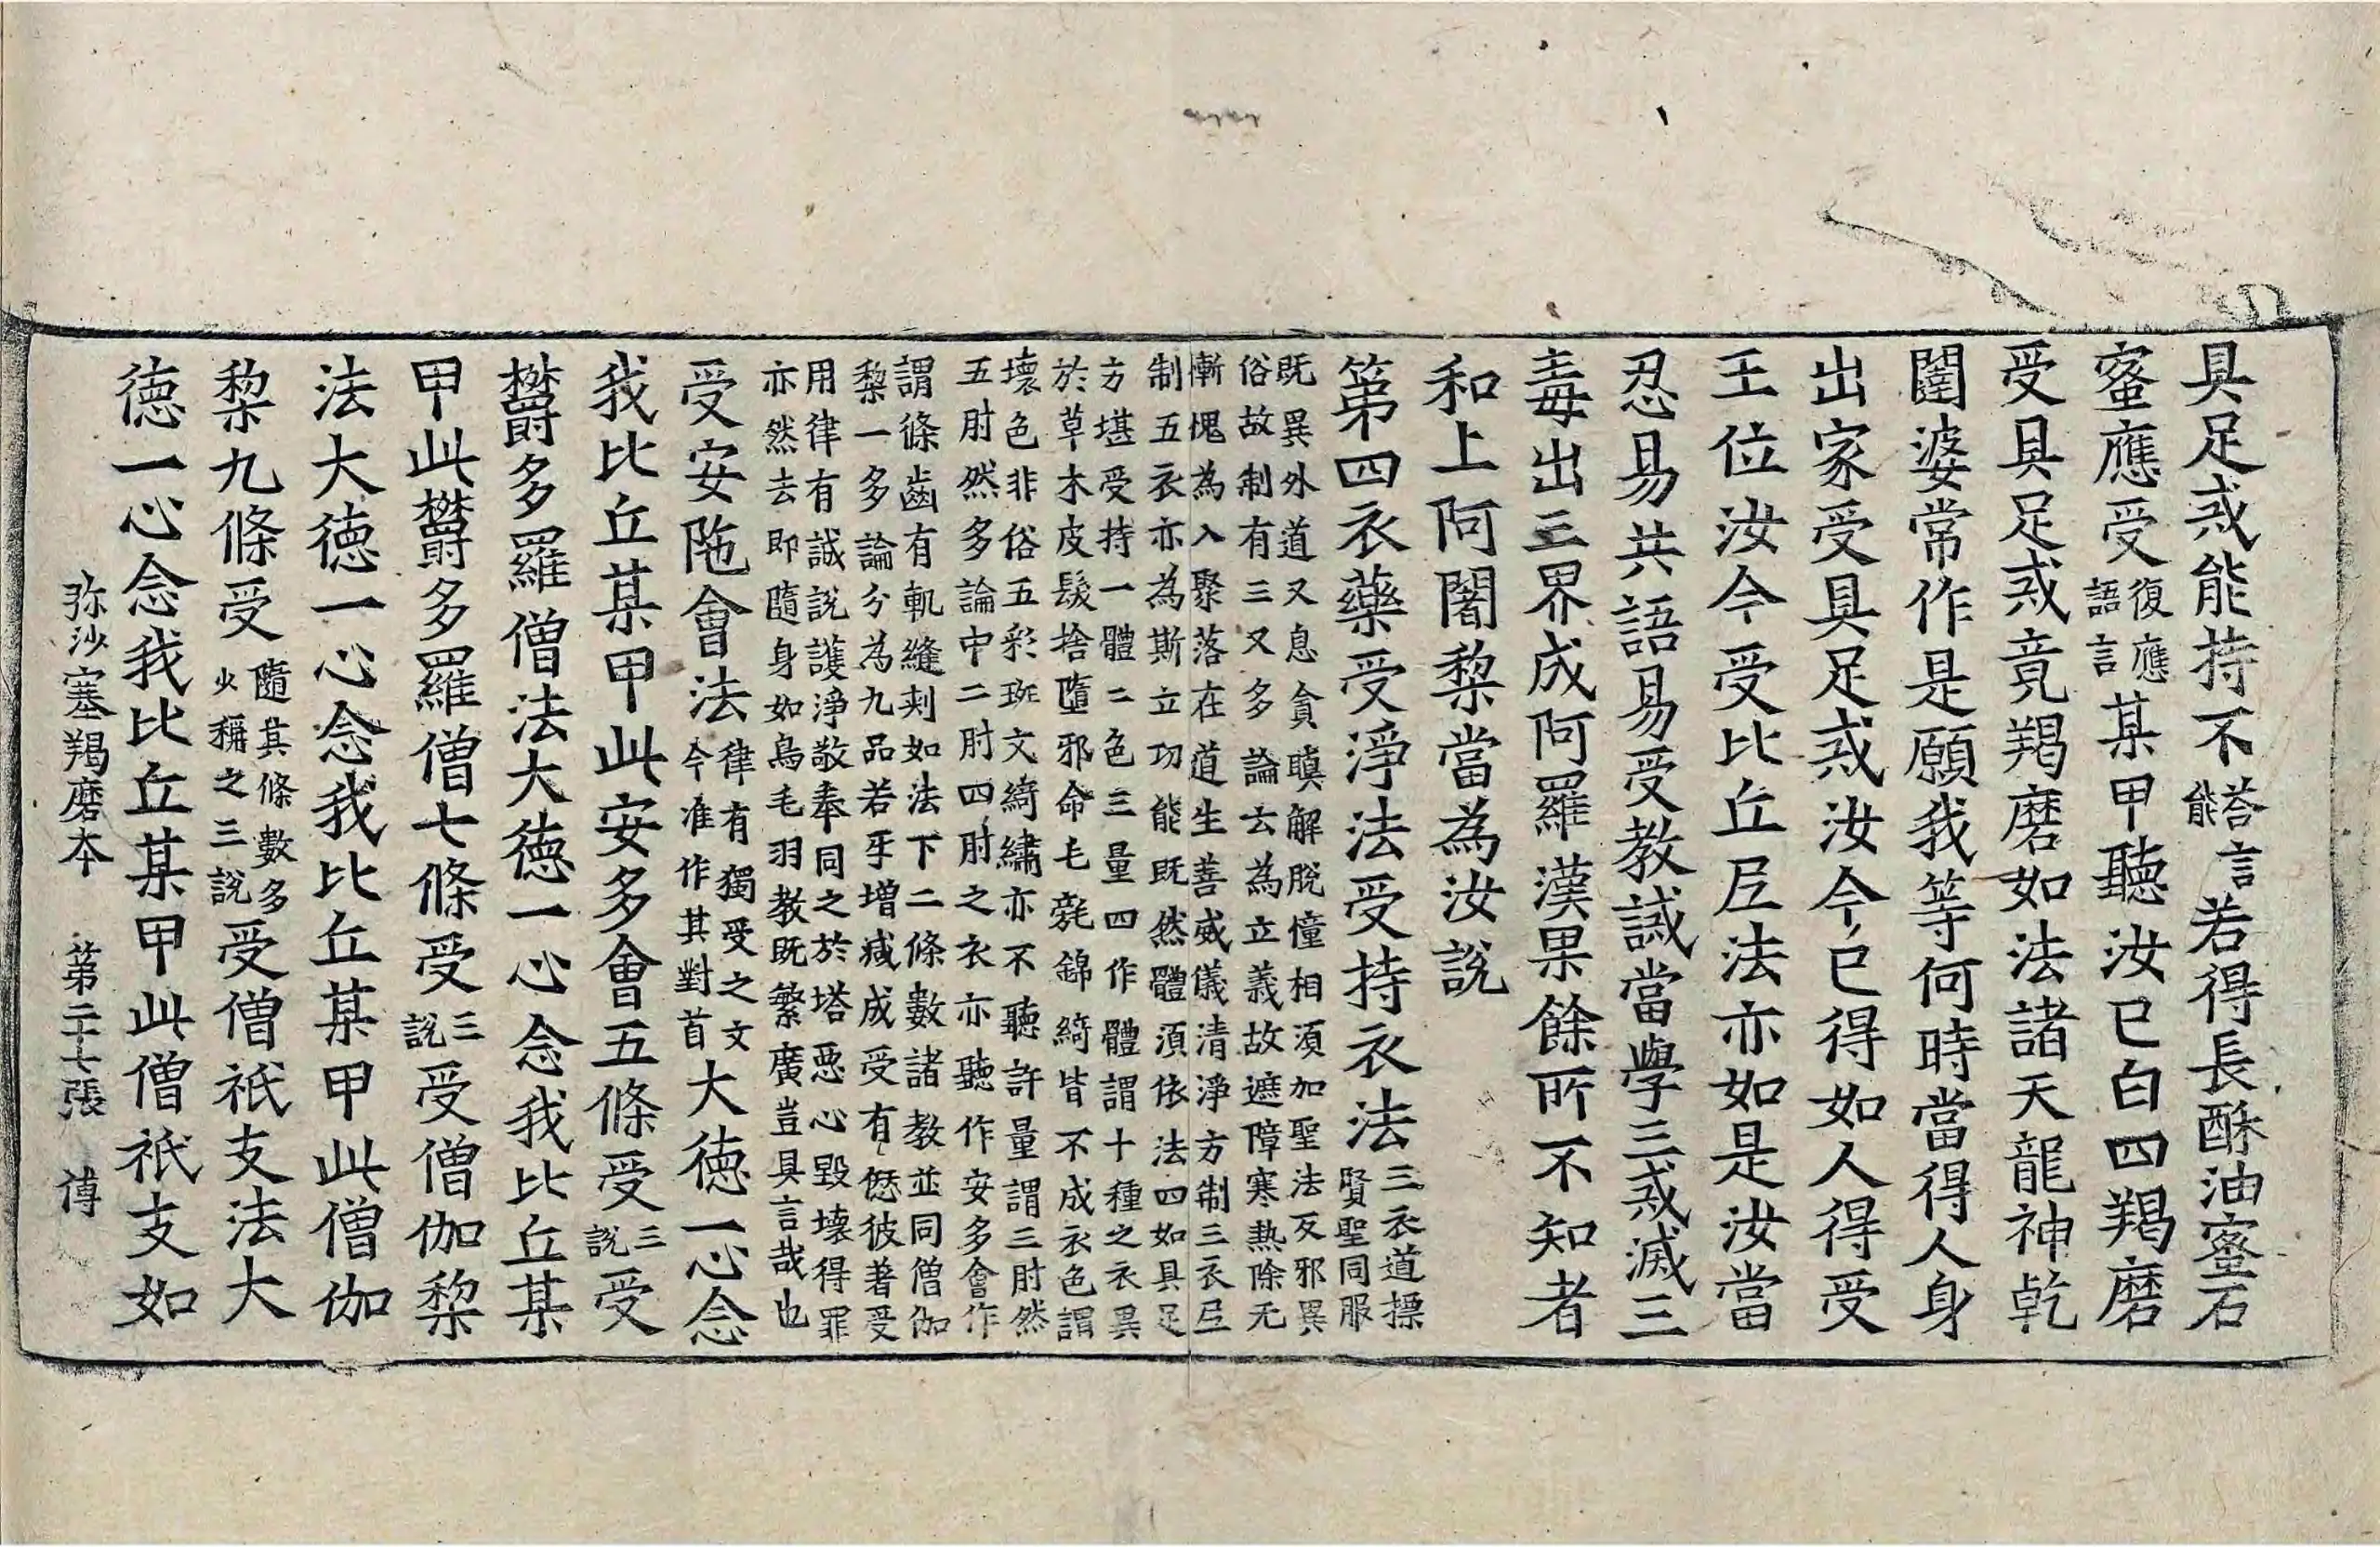 具足戒能持不答言能若得長酥油蜜石
蜜應受復應語言某甲聽汝已白四羯磨
受具足戒竟羯磨如法諸天龍神乹
闥婆常作是願我等何時當得人身
出家受具足戒汝今已得如人得受
王位汝今受比丘尼法亦如是汝當
忍易共語易受教誡當學三戒滅三
毒出三界成阿羅漢果餘所不知者
和上阿闍梨當為汝說
第四衣藥受淨法受持衣法三衣道摽賢聖同服
既異外道又息貪瞋解脫幢相須加聖法反邪異
俗故制有三又多論云為立義故遮障寒熱除无
慚愧為入聚落在道生善威儀清淨方制三衣尼
制五衣亦為斯立功能既然體須依法四如具足
方堪受持一體二色三量四作體謂十種之衣異
於草木皮髮捨墮邪命毛毳錦綺皆不成衣色謂
壞色非俗五彩斑文綺繡亦不聽許量謂三肘然
五肘然多論中二肘四肘之衣亦聽作安多會作
謂條齒有軌縫刾如法下二條數諸教並同僧伽
梨一多論分為九品若牙增減成受有愆彼著受
用律有誠說護淨敬奉同之於塔惡心毀壞得罪
亦然去即隨身如鳥毛羽教既繁廣豈具言哉也
受安陁會法律有獨受之文今准作其對首大德一心念
我比丘某甲此安多會五條受三說受
欝多羅僧法大德一心念我比丘某
甲此欝多羅僧七條受三說受僧伽梨
法大德一心念我比丘某甲此僧伽
梨九條受隨其條數多少稱之三說受僧祇支法大
德一心念我比丘某甲此僧祇支如
弥沙塞羯磨本 第二十七張 傅